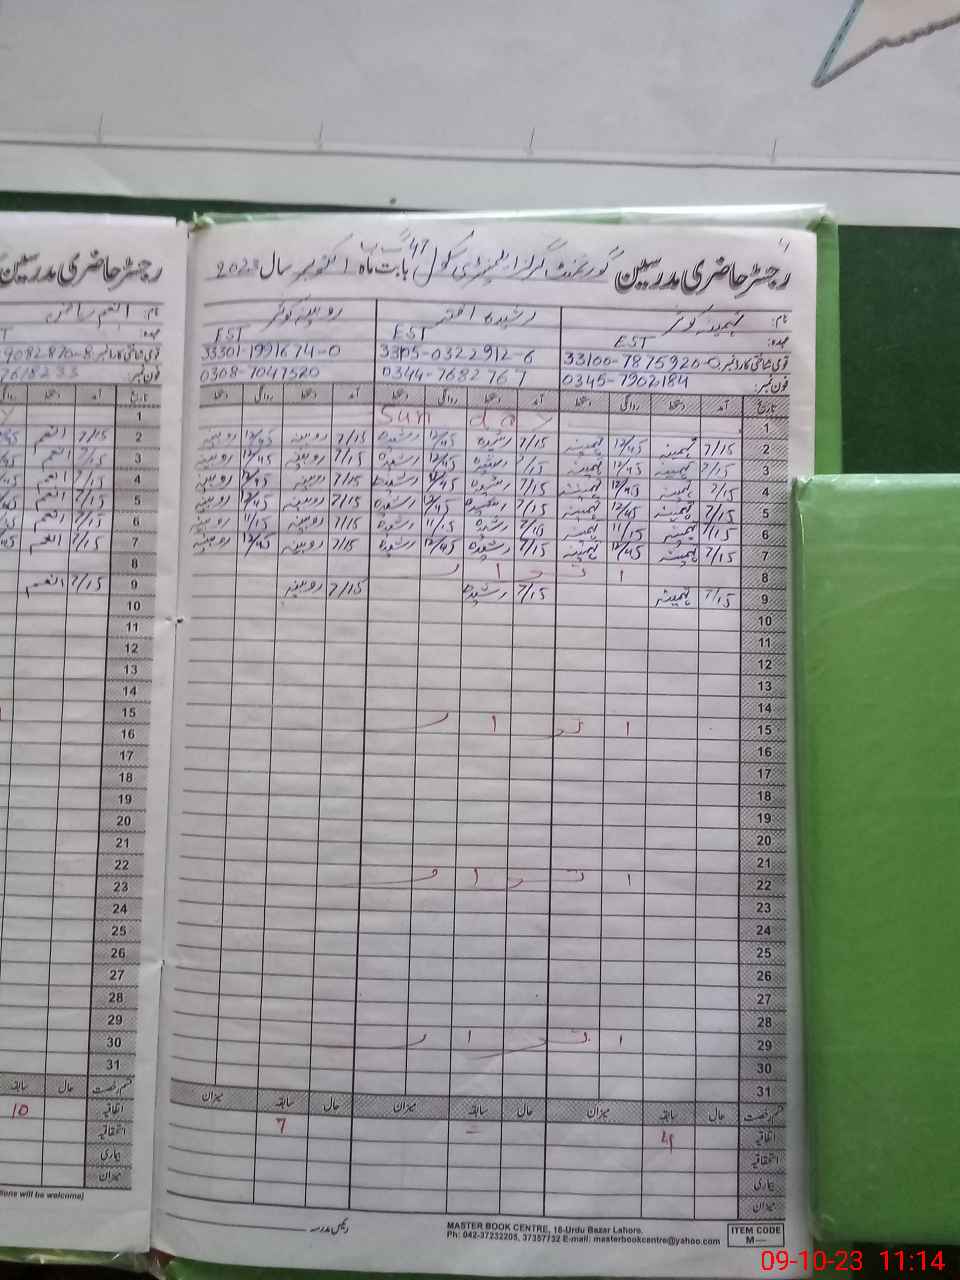 رجسٹر حاضری مدرسین گورنمنٹ گرلز ایلیمنٹری سکول 47 گ ب بابت ماہ اکتوبر سال 2023
نام: ثمینہ کوثر رشیدہ اختر روبینہ کوثر
عہدہ: EST EST EST
قومی شناختی کارڈ نمبر 33100-7875920-0 3305-0322912-6 33301-1991674-0
فون نمبر: 0345-7902184 0344-7682767 0308-7047520
تاریخ آمد دستخط روانگی دستخط آمد دستخط روانگی دستخط آمد دستخط روانگی دستخط
1 Sunday
2 7/15 ثمینہ 12/45 ثمینہ 7/15 رشیدہ 12/45 رشیدہ 7/15 روبینہ 12/45 روبینہ
3 7/15 ثمینہ 12/45 ثمینہ 7/15 رشیدہ 12/45 رشیدہ 7/15 روبینہ 12/45 روبینہ
4 7/15 ثمینہ 12/45 ثمینہ 7/15 رشیدہ 12/45 رشیدہ 7/15 روبینہ 12/45 روبینہ
5 7/15 ثمینہ 12/45 ثمینہ 7/15 رشیدہ 12/45 رشیدہ 7/15 روبینہ 12/45 روبینہ
6 7/15 ثمینہ 11/15 ثمینہ 7/15 رشیدہ 11/15 رشیدہ 7/15 روبینہ 11/15 روبینہ
7 7/15 ثمینہ 12/45 ثمینہ 7/15 رشیدہ 12/45 رشیدہ 7/15 روبینہ 12/45 روبینہ
8 اتوار
9 7/15 ثمینہ 7/15 رشیدہ 7/15 روبینہ
10
11
12
13
14
15 اتوار
16
17
18
19
20
21
22 اتوار
23
24
25
26
27
28
29 اتوار
30
31
قسم رخصت حال سابقہ میزان حال سابقہ میزان حال سابقہ میزان
اتفاقیہ 4 = 7
استحقاقیہ
بیماری
میزان
رئیس مدرسہ
MASTER BOOK CENTRE, 18-Urdu Bazar Lahore.
Ph: 042-37232205, 37357732 E-mail: masterbookcentre@yahoo.com
ITEM CODE
M—
رجسٹر حاضری مدرسین
نام:
عہدہ:
قومی شناختی کارڈ نمبر 9082870-8
فون نمبر: 7618233
تاریخ آمد دستخط روانگی
1
2 7/15 انعم
3 7/15 انعم
4 7/15 انعم
5 7/15 انعم
6 7/15 انعم
7 7/15 انعم
8
9 7/15 انعم
10
11
12
13
14
15
16
17
18
19
20
21
22
23
24
25
26
27
28
29
30
31
قسم رخصت حال سابقہ
اتفاقیہ 10
استحقاقیہ
بیماری
میزان
tions will be welcome)
09-10-23 11:14